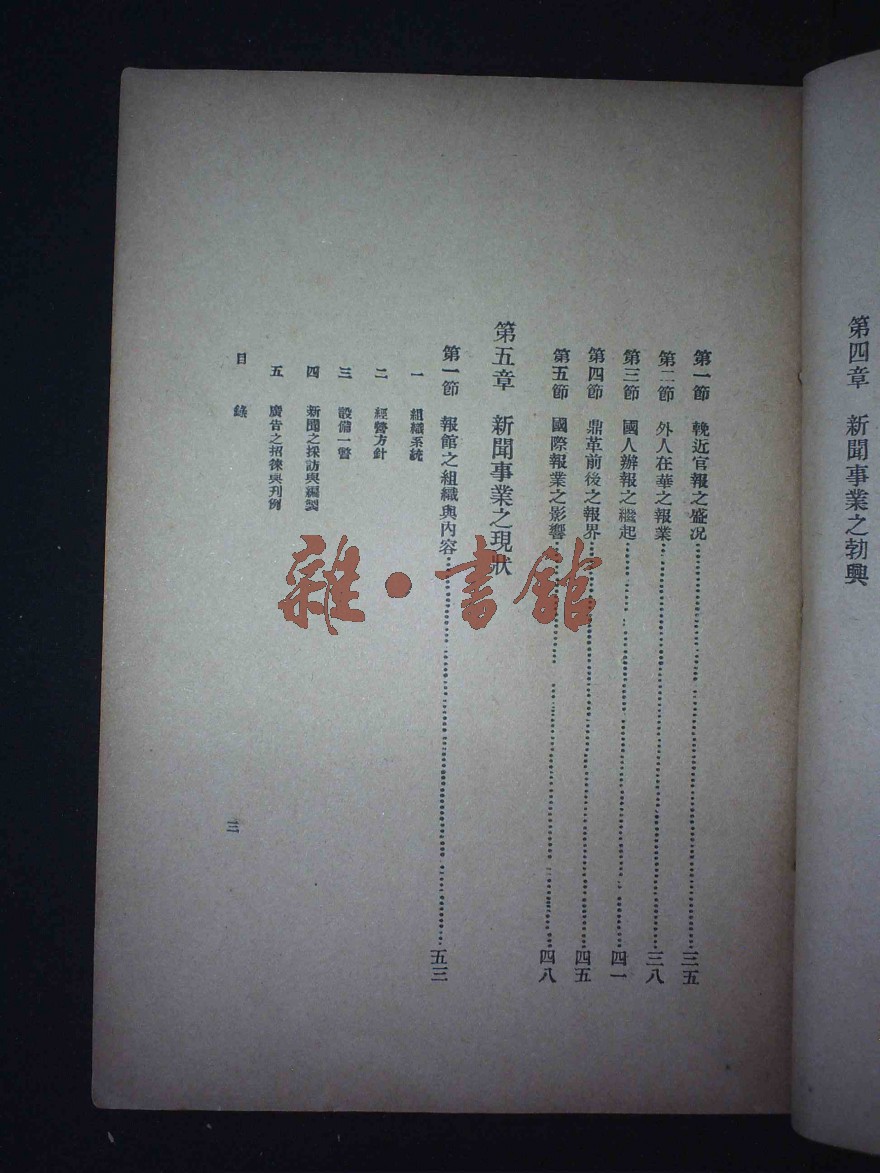 第四章　新聞事業之勃興
第一節　輓近官報之盛况……三五
第二節　外人在華之報業……三八
第三節　國人辦報之繼起……四一
第四節　鼎革前後之報界……四五
第五節　國際報業之影響……四八
第五章　新聞事業之現狀
第一節　報館之組織與內容……五三
一　組織系統
二　經營方針
三　設備一瞥
四　新聞之採訪與編製
五　廣告之招徠與刊例
目　錄
三
雜·書館